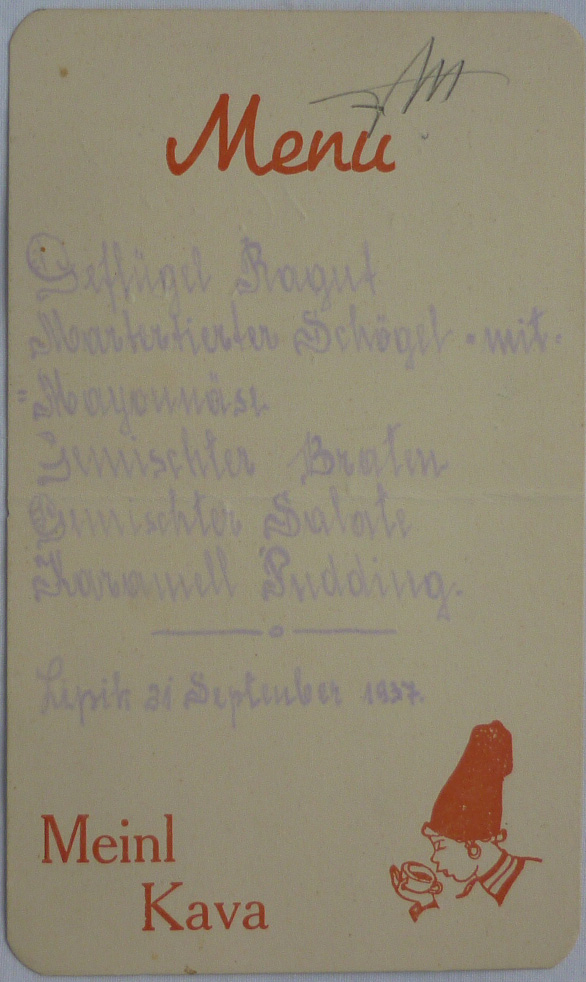 Menu
Geflügel Ragut
Martertierter Schögel - mit -
"Mayonnäse
Gemischter Braten
Gemischter Salate
Karamell Pudding.
Lipik 31 September 1937.
Meinl
Kava